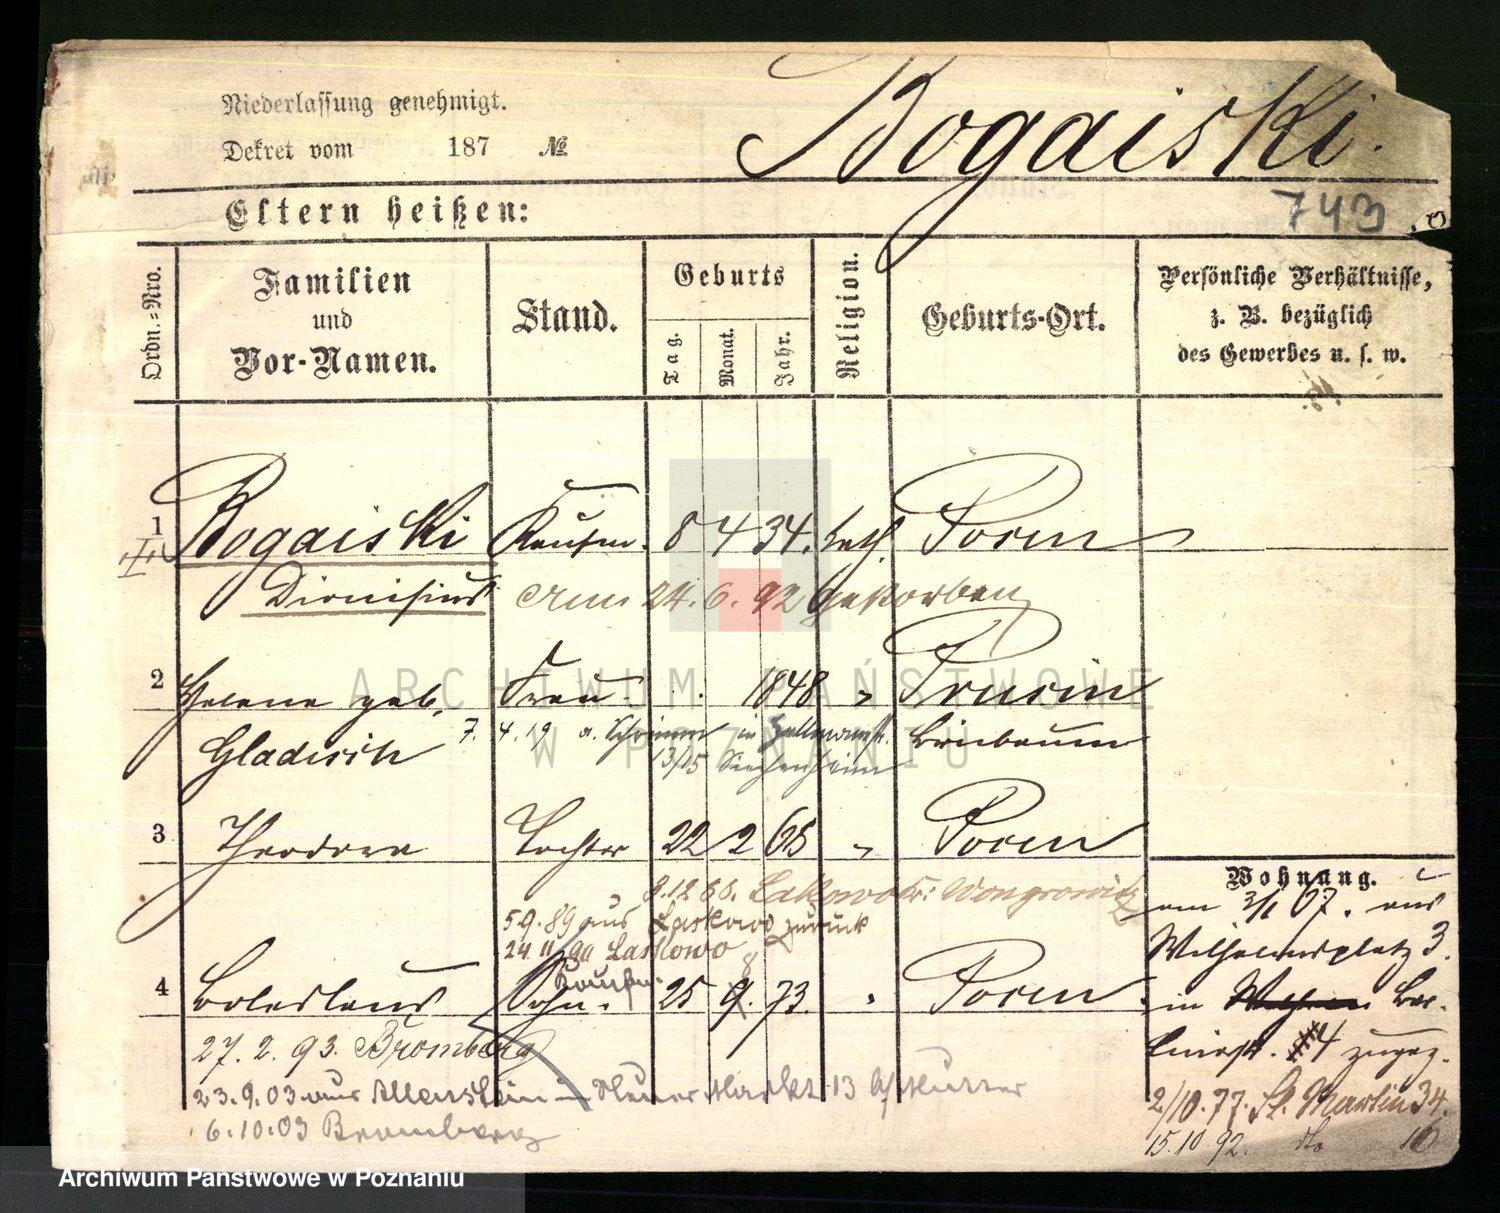 Niederlassung genehmigt.
Dekret vom 187 №
Bogaiski.
743
Eltern heißen:
Ordn.=Nro.
Familien und Vor-Namen.
Stand.
Geburts
Tag.
Monat.
Jahr.
Religion.
Geburts-Ort.
Persönliche Verhältnisse,
z. B. bezüglich
des Gewerbes u. s. w.
1 Bogaiski Kaufm. 8 4 34. kath Posen
Dionisius am 24. 6. 92 gestorben
2 Helene geb. Frau 1848 "
Gladisch 7. 4. 19 a. Schrimm in Birnbaum
13/15 Siechenheim
3 Theodora Tochter 22 2 65 " Posen
8.12 66. Laskowo Kr: Wongrowitz
5 9. 89 aus Laskowo zurück
24. 11 90 Laskowo
Kaufm.
8
4 Boleslaus Sohn. 25 9. 73. " Posen
27. 2. 93. Bromberg
23. 9. 03 aus Allenstein in Neuer Markt 13 b/Mutter
6. 10. 03 Bromberg
Wohnung.
am 3/1 67. aus
Wilhelmsplatz 3.
in Ber-
linerstr. 4 zugez.
2/10. 77. St. Martin 34.
15. 10. 92. dto 10
ARCHIWUM PAŃSTWOWE
W POZNANIU
Archiwum Państwowe w Poznaniu